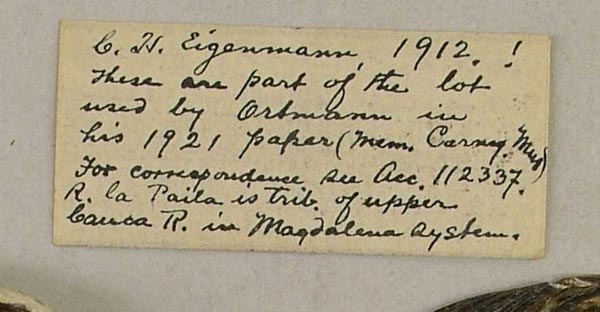 C. H. Eigenmann, 1912. !
These are part of the lot
used by Ortmann in
his 1921 paper (Mem. Carneg. Mus)
For correspondence see Acc. 112337.
R. la Paila is trib. of upper
Cauca R. in Magdalena system.